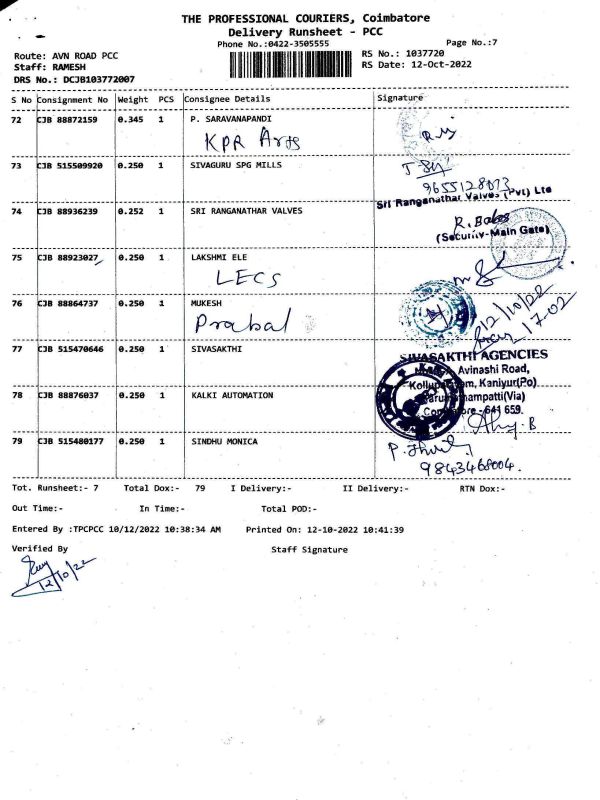 THE PROFESSIONAL COURIERS, Coimbatore
Delivery Runsheet - PCC
Phone No.:0422-3505555
Page No.:7
Route: AVN ROAD PCC
RS No.: 1037720
Staff: RAMESH
RS Date: 12-Oct-2022
DRS No.: DCJB103772007
S No Consignment No Weight PCS Consignee Details Signature
72 CJB 88872159 0.345 1 P. SARAVANAPANDI
KPR Arts
73 CJB 515509920 0.250 1 SIVAGURU SPG MILLS
Sri Ranganathar Valves (Pvt) Ltd
74 CJB 88936239 0.252 1 SRI RANGANATHAR VALVES
(Security-Main Gate)
75 CJB 88923027 0.250 1 LAKSHMI ELE
LECS
76 CJB 88864737 0.250 1 MUKESH
Prabal
12/10/22
17-02
77 CJB 515470646 0.250 1 SIVASAKTHI
SIVASAKTHI AGENCIES
Avinashi Road,
Kaniyur(Po)
78 CJB 88876037 0.250 1 KALKI AUTOMATION
641 659.
79 CJB 515480177 0.250 1 SINDHU MONICA
9843468004.
Tot. Runsheet:- 7 Total Dox:- 79 I Delivery:- II Delivery:- RTN Dox:-
Out Time:- In Time:- Total POD:-
Entered By :TPCPCC 10/12/2022 10:38:34 AM Printed On: 12-10-2022 10:41:39
Verified By Staff Signature
12/10/22